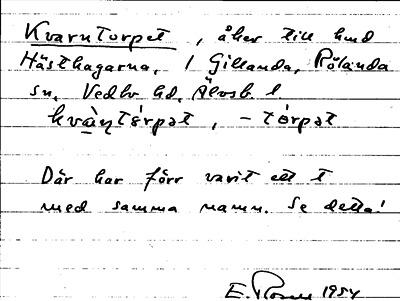 Kvarntorpet, åker till hmd
Hästhagarna, 1 Gillanda, Rölanda
sn, Vedbo hd, Älvsb. l
kvàn̥tórpət, -tórpət
Där har förr varit ett t
med samma namn. Se detta!
E. 1954